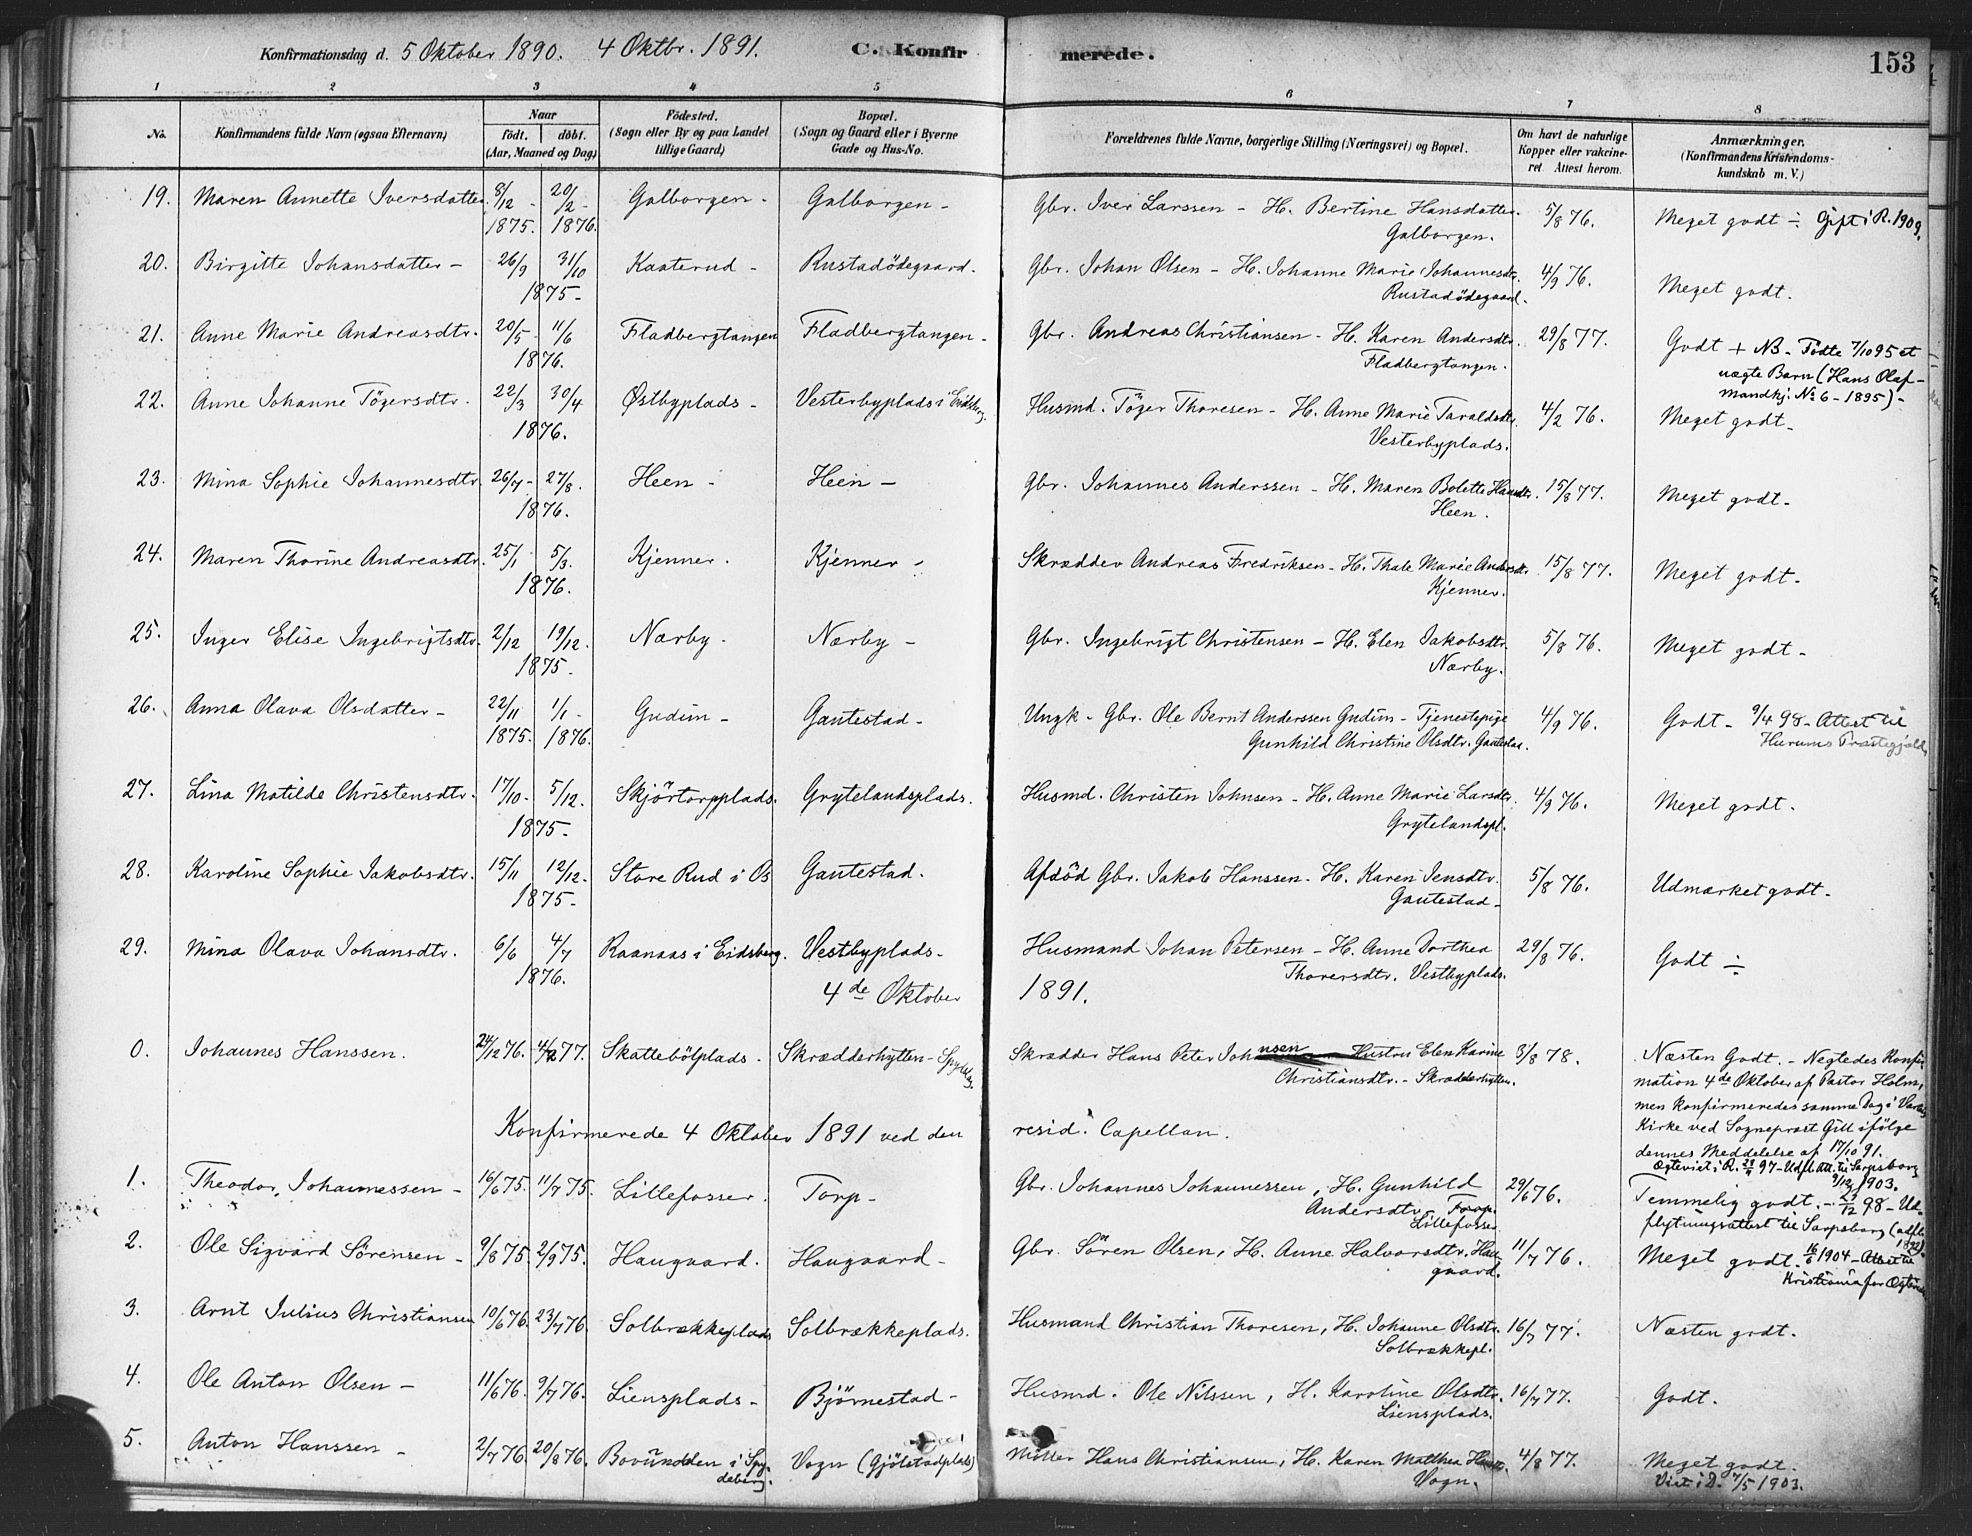 Konfirmationsdag d. 5 Oktober 1890. 4 Oktbr. 1891. C. Konfirmerede. 153
1 2 3 4 5 6 7 8
No. Konfirmandens fulde Navn (ogsaa Efternavn) Naar født. døbt. (Aar, Maaned og Dag) Fødested. (Sogn eller By og paa Landet tillige Gaard) Bopæl. (Sogn og Gaard eller i Byerne Gade og Hus-No. Forældrenes fulde Navne, borgerlige Stilling (Næringsvei) og Bopæl. Om havt de naturlige Kopper eller vakcineret Attest herom. Anmærkninger. (Konfirmandens Kristendomskundskab m. V.)
19. Maren Annette Iversdatter. 8/12 - 20/2 - Galborgen - Galborgen - Gbr. Iver Larssen - H. Bertine Hansdatter. 5/8 76. Meget godt ÷ Gift i R. 1909.
1875. 1876. Galborgen.
20. Birgitte Johansdatter - 26/9 31/10 Kaaterud - Rustadödegaard. Gbr. Johan Olsen - H. Johanne Marie Johannesdtr. 4/9 76. Meget godt.
1875 - Rustadödegaard.
21. Anne Marie Andreasdtr. 20/5 - 11/6 Fladbergtangen Fladbergtangen - Gbr. Andreas Christiansen - H. Karen Andersdtr. 29/8 77. Godt + NB - Födte 7/10 95 et
1876. Fladbergtangen. uægte Barn (Hans Olaf -
mandkj. No 6 - 1895) -
22. Anne Johanne Tögersdtr. 22/3 30/4 Østbyplads - Vesterbyplads i Eidsberg. Husmd. Töger Thoresen - H. Anne Marie Taraldsdtr. 4/2 76. Meget godt -
1876. Vesterbyplads.
23. Mina Sophie Johannesdtr. 26/7 - 27/8. Heen - Heen - Gbr. Johannes Anderssen - H. Maren Bolette Hansdtr. 15/8 77. Meget godt -
1876. Heen.
24. Maren Thorine Andreasdtr. 25/1 5/3. Kjenner. Kjenner - Skrædder Andreas Fredriksen - H. Thale Marie Andersdtr. 15/8 77. Meget godt -
1876. Kjenner.
25. Inger Elise Ingebrigtsdtr. 2/12 19/12. Nærby. Nærby - Gbr. Ingebrigt Christensen - H. Elen Jakobsdtr. 5/8 76. Meget godt -
1875. Nærby.
26. Anna Olava Olsdatter - 22/11 1/1 - Gudim - Gautestad - Ungk. - Gbr. Ole Bernt Anderssen Gudim - Tjenestepige 4/9 76. Godt - 9/4 98 - Attest til
1875. 1876. Gunhild Christine Olsdtr. Gautestad. Hurums Præstegjeld
27. Lina Matilde Christensdtr. 17/10 - 5/12. Skjörtorpplads. Grytelandsplads. Husmd. Christen Johnsen - H. Anne Marie Larsdtr. 4/9 76. Meget godt.
1875 - Grytelandspl.
28. Karoline Sophie Jakobsdtr. 15/11 12/12. Store Rud i Ås Gautestad. Afdöd Gbr. Jakob Hanssen - H. Karen Jensdtr. 5/8 76. Udmærket godt -
1875 - Gautestad -
29. Mina Olava Johansdtr. 6/6 4/7 Raanaas i Eidsberg. Vestbyplads - Husmand Johan Petersen - H. Anne Dorthea 29/8 76. Godt ÷
1876. Thorersdtr. Vestbyplads.
4de Oktober 1891.
0. Johannes Hanssen. 24/12 76. 4/2 77. Skattebölplads. Skrædderhytten - Skrædder Hans Peter Johnsen Hustru Elen Karine 3/8 78. Næsten Godt. - Negtedes Konfir
Christiansdtr. - Skrædderhytten. mation 4de Oktober af Pastor Holm,
men konfirmeredes samme Dag i
Konfirmerede 4 Oktober 1891 ved den resid. Capellan. Kirke ved Sognepræst Gill ifölge
dennes Meddelelse af 17/10 91.
Ægteviet i R. 97 - Udfl. att. til Sarpsborg
1903.
1. Theodor, Johannessen - 16/6 75. 11/7 75. Lillefosser. Torp - Gbr. Johannes Johannessen, H. Gunhild 29/6 76. Temmelig godt. - 98 - Ud-
Andersdtr. Torp. Lillefosser flytningsattest til Sarpsborg
2. Ole Sigvard Sörensen - 9/8 75. 2/9 75. Haugaard. Haugaard - Gbr. Sören Olsen, H. Anne Halvorsdtr. Hau 11/7 76. Meget godt. 16/6 1904 - Attest til
gaard. Kristiania for
3. Arnt Julius Christiansen 10/6 76. 23/7 76. Solbrækkeplads Solbrækkeplads. Husmand Christian Thoresen, H. Johanne Olsdtr. 16/7 77. Næsten godt.
Solbrækkepl.
4. Ole Anton Olsen - 11/6 76. 9/7 76. Liensplads - Björnestad - Husmd. Ole Nilssen, H. Karoline Olsdtr. 16/7 77. Godt.
Liensplads.
5. Anton Hanssen - 2/7 76. 20/8 76. Bovundden i Spydeberg. Vogn (Gjölstadplads) Möller Hans Christiansen, H. Karen Matthea 4/8 77. Meget godt.
Vogn. Viet i D. 7/5 1903.